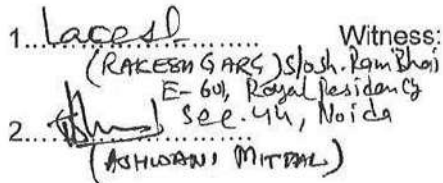 1............................ Witness:
(RAKESH GARG) S/o Sh. Ram Bhaj
E-601, Royal Residency
Sec. 44, Noida
2............................
(ASHWANI MITTAL)